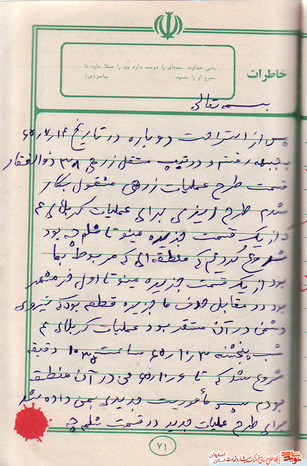 خاطرات
وقتی خداوند بنده‌ای را دوست دارد وی را مبتلا سازد تا
تضرع او را بشنود.
پیامبر(ص)
بسمه تعالی
پس از استراحت دوباره در تاریخ
به جبهه رفتم و در تیپ مستقل زرهی ۳۸ ذوالفقار
قسمت طرح عملیات زرهی مشغول بکار
شدم طرح ریزی برای عملیات کربلای ۴
که از یک قسمت جزیره مینو تا شلمچه بود
شروع کردیم که منطقه‌ای که مربوط بما
بود از یک قسمت جزیره مینو تا اول خرمشهر
بود در مقابل هدف ما جزیره قطعه بود که نیروی
دشمن در آن مستقر بود عملیات کربلای ۴
شب پنجشنبه ساعت دقیقه
شروع شد که تا می در آن منطقه
بودم سپس مأموریت جدیدی بمن داده شد
برای طرح عملیات جدید در قسمت شلمچه
۷۱